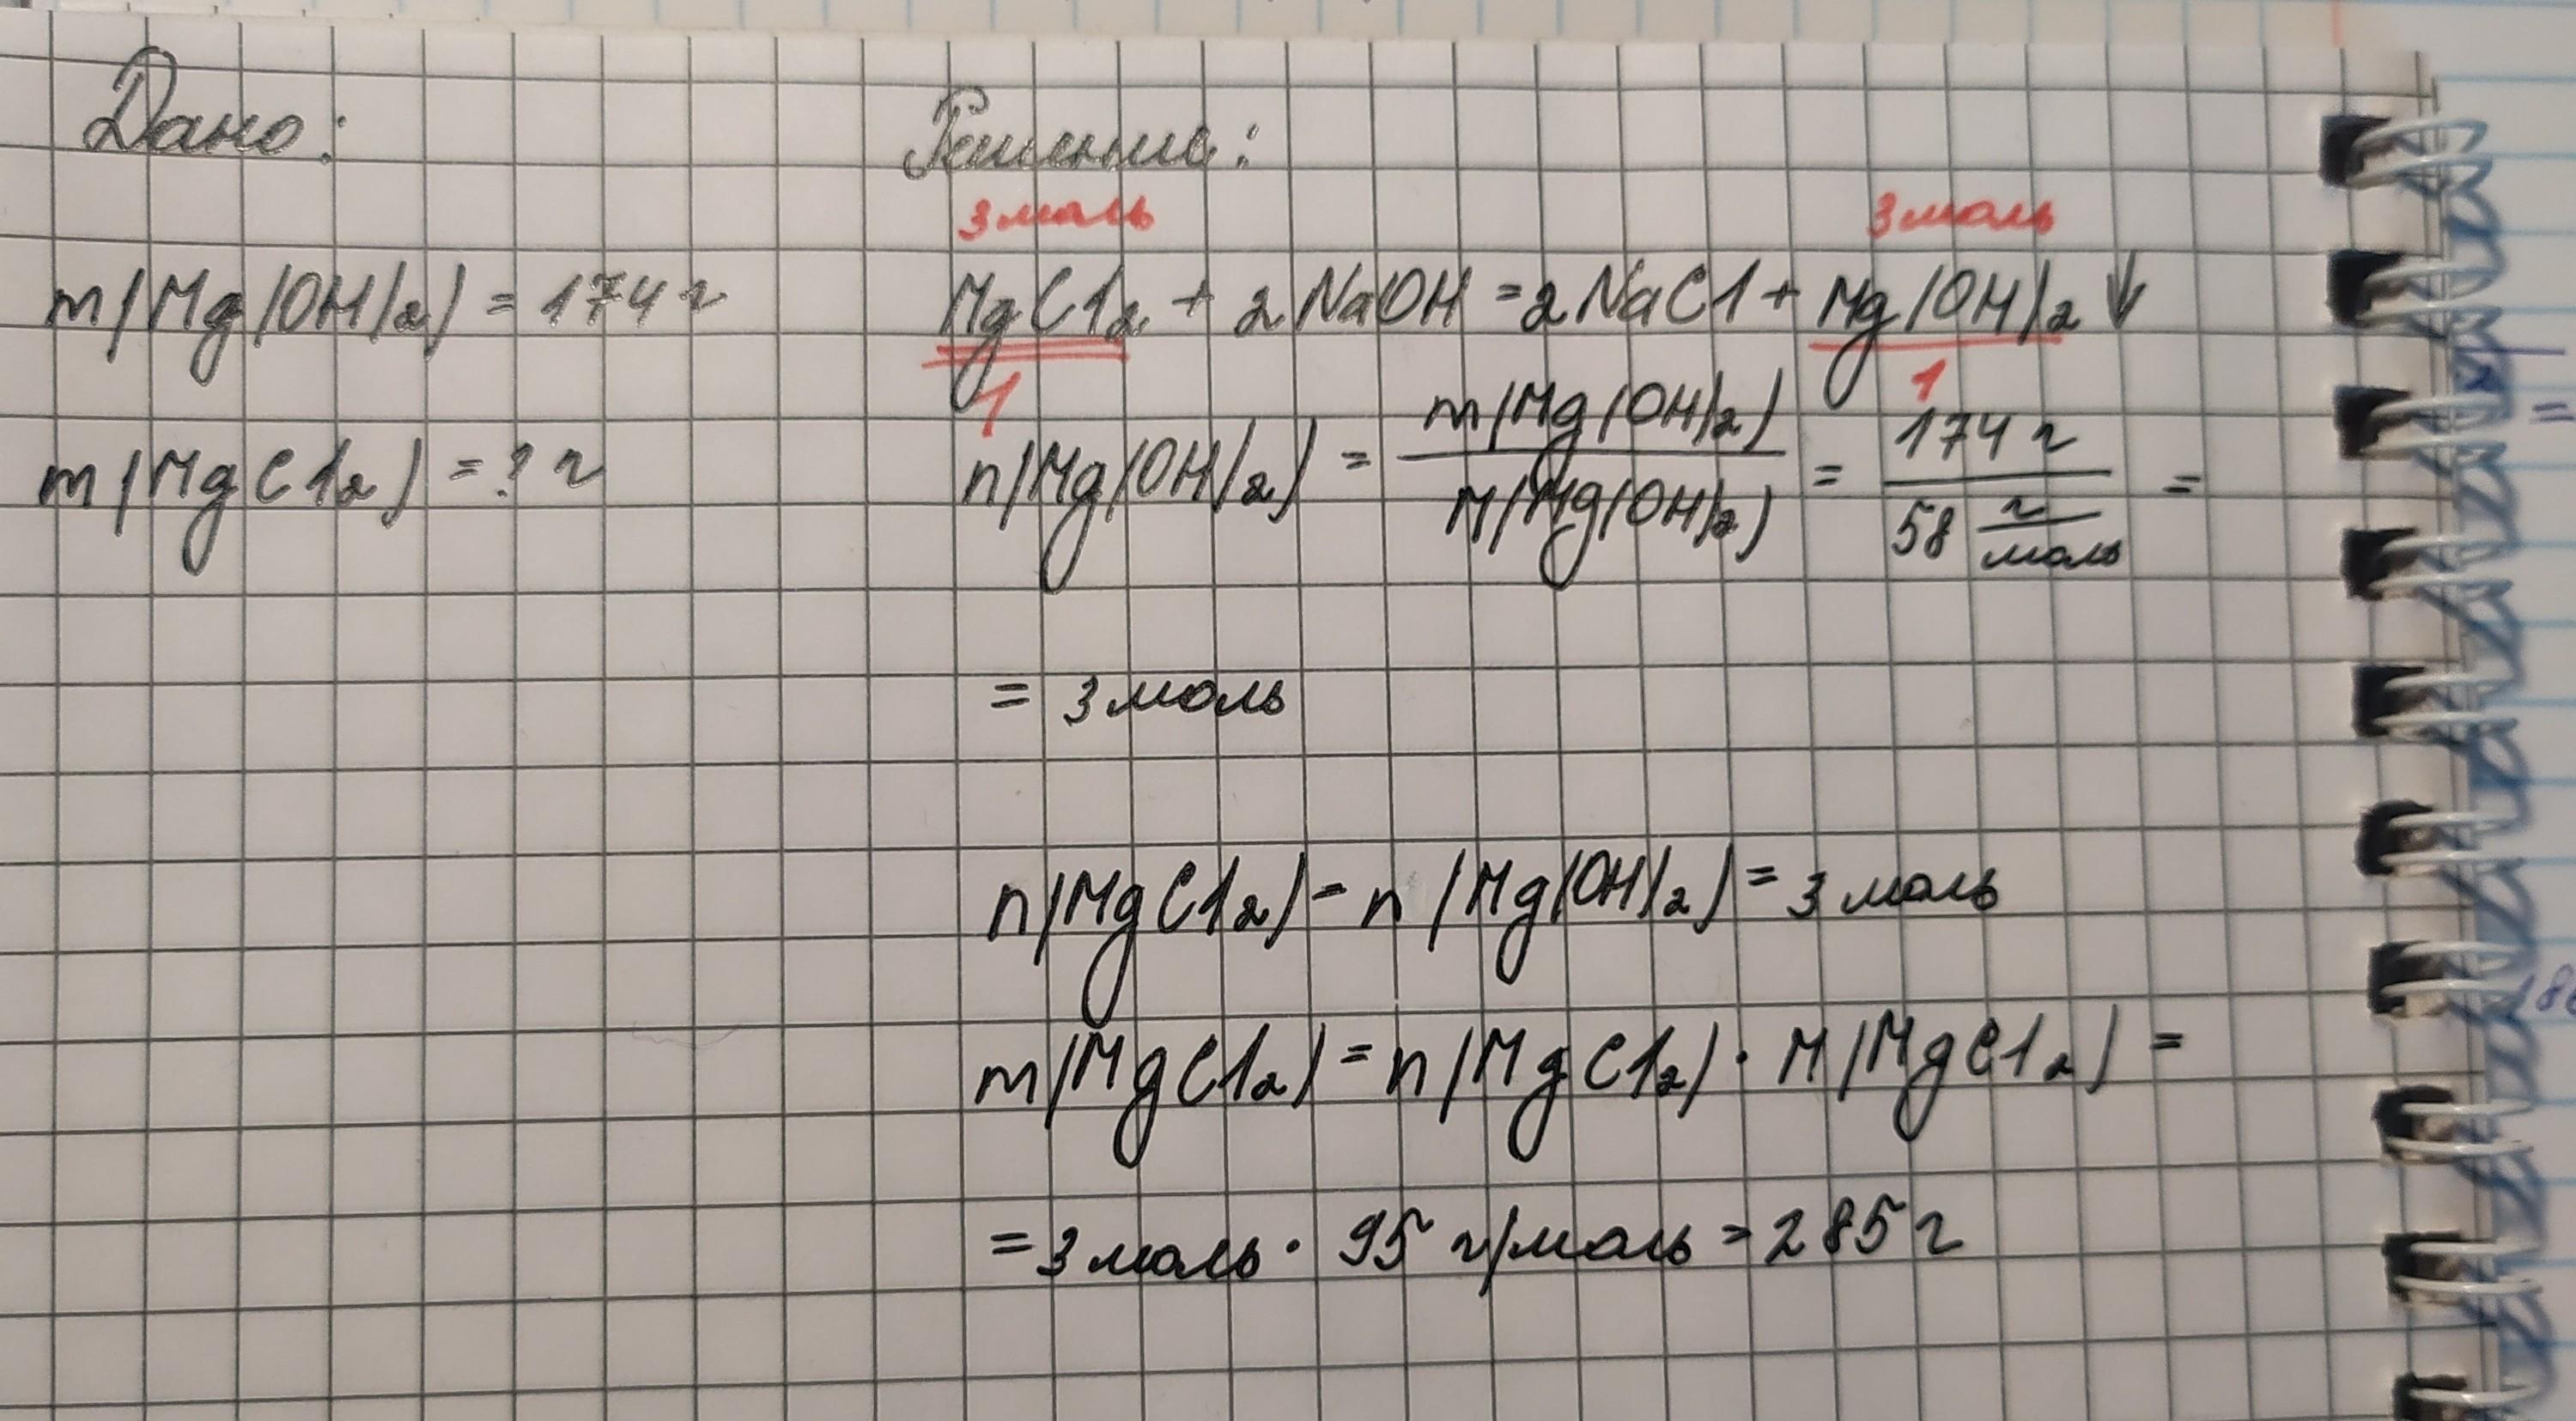 Дано:
m(Mg(OH)2) = 174 г
m(MgCl2) = ? г
Решение:
3 моль 3 моль
MgCl2 + 2NaOH = 2NaCl + Mg(OH)2 ↓
1 1
n(Mg(OH)2) = m(Mg(OH)2) / M(Mg(OH)2) = 174 г / 58 г/моль =
= 3 моль
n(MgCl2) = n(Mg(OH)2) = 3 моль
m(MgCl2) = n(MgCl2) · M(MgCl2) =
= 3 моль · 95 г/моль = 285 г